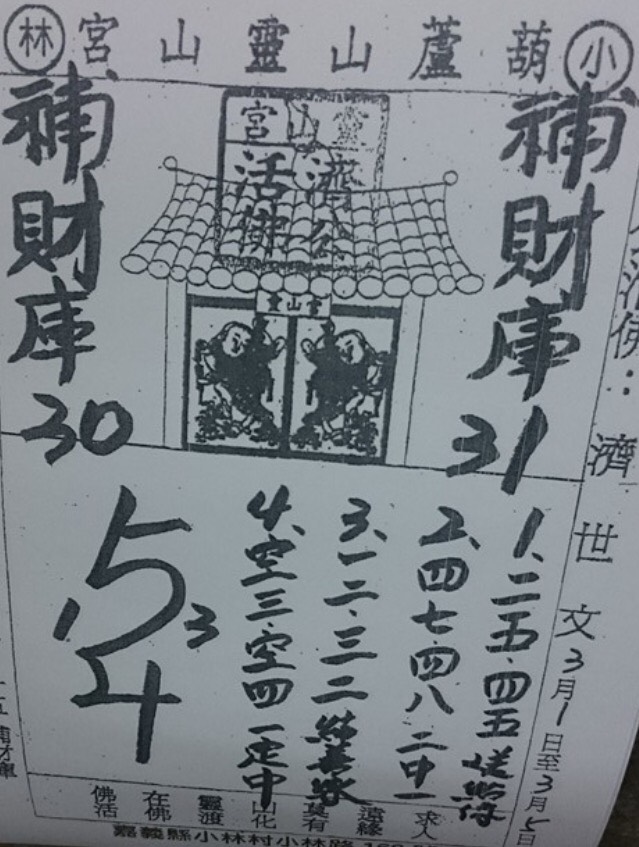 小 葫蘆山靈山宮 林
靈山宮
濟公
活佛
靈山宮
補財庫
31
補財庫
30
活佛：濟世文3月1日至3月5日
1、二五.四五
2、四七.四八 二中一
3、一二.三二
4、空三.空四 一定中
5
1 3
4
求人
遠緣
莫有
山化
靈渡
在佛
佛活
補財庫
嘉義縣小林村小林路